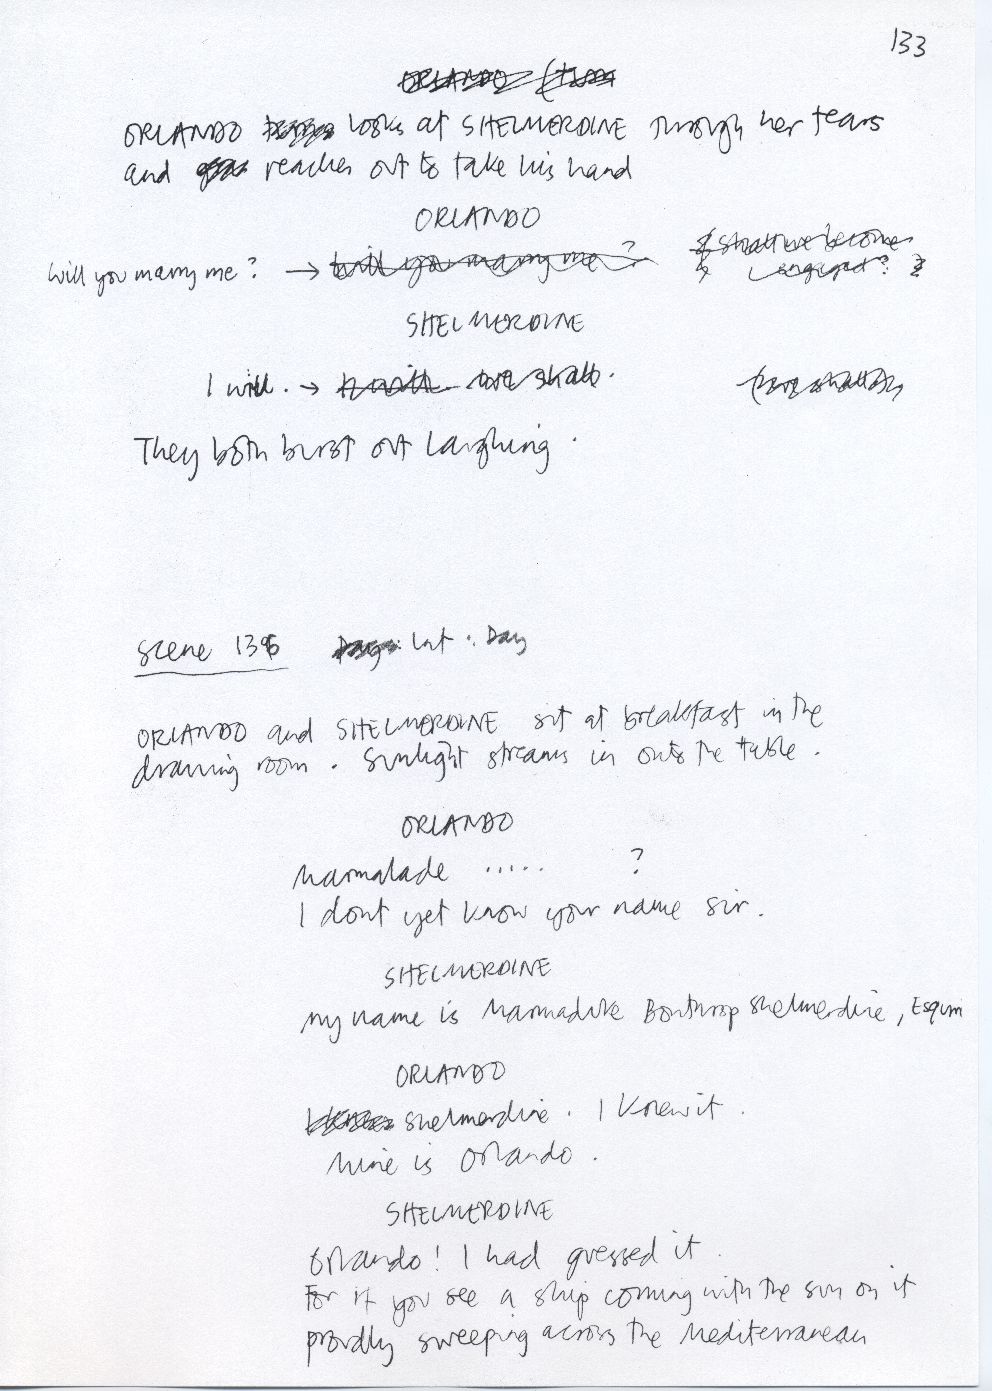 133
ORLANDO
ORLANDO looks at SHELMERDINE through her tears
and reaches out to take his hand
ORLANDO
Will you marry me? → will you marry me? shall we become
engaged?
SHELMERDINE
I will. → I will. we shall. (we shall)
They both burst out laughing.
Scene 136 Int. Day
ORLANDO and SHELMERDINE sit at breakfast in the
drawing room. Sunlight streams in onto the table.
ORLANDO
Marmalade ..... ?
I dont yet know your name sir.
SHELMERDINE
My name is Marmaduke Bonthrop Shelmerdine, Esquire
ORLANDO
Shelmerdine. I knew it.
Mine is Orlando.
SHELMERDINE
Orlando! I had guessed it.
For if you see a ship coming with the sun on it
proudly sweeping across the Mediterranean